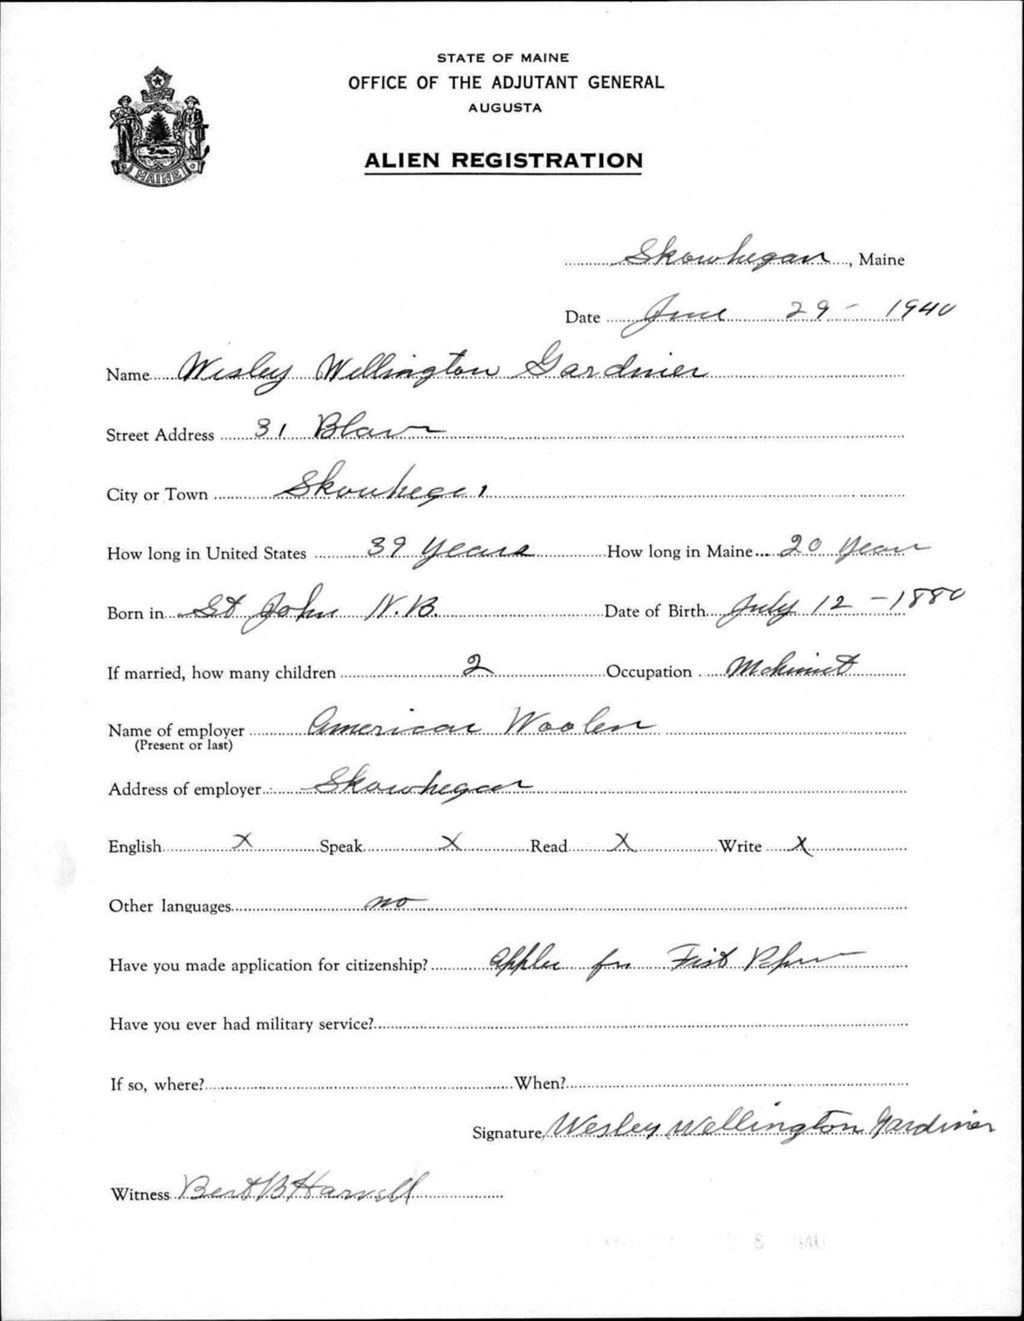 STATE OF MAINE
OFFICE OF THE ADJUTANT GENERAL
AUGUSTA
ALIEN REGISTRATION
MAINE
Skowhegan, Maine
Date June 29 - 1940
Name Wesley Wellington Gardiner
Street Address 31
City or Town Skowhegan
How long in United States 39 years How long in Maine 20 Years
Born in St John N.B. Date of Birth July 12 - 1880
If married, how many children 2 Occupation
Name of employer American Woolen
(Present or last)
Address of employer Skowhegan
English X Speak X Read X Write X
Other languages no
Have you made application for citizenship? for
Have you ever had military service?
If so, where? When?
Signature Wesley Wellington Gardiner
Witness Bert B Harvell